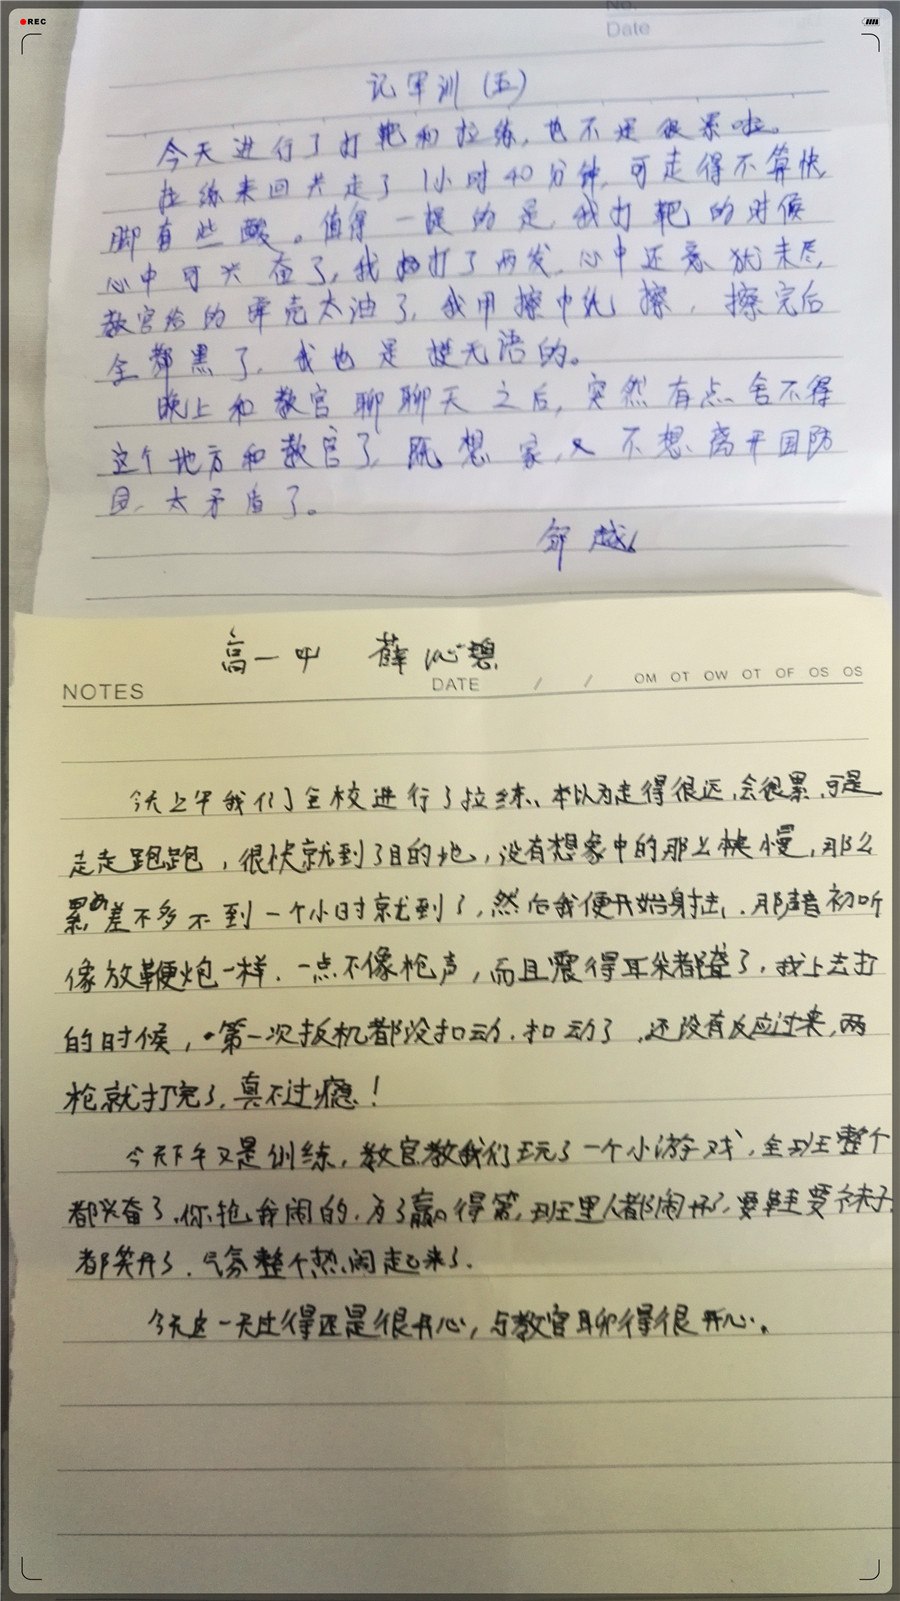 REC
No.
Date
记军训（五）
今天进行了打靶和拉练，也不是很累啦。
拉练来回共走了1小时40分钟，可走得不算快，
脚有些酸。值得一提的是，我打靶的时候
心中可兴奋了，我打了两发，心中还意犹未尽，
教官给的弹壳太油了，我用擦巾纸擦，擦完后
全都黑了，我也是挺无语的。
晚上和教官聊聊天之后，突然有点舍不得
这个地方和教官了，既想家，又不想离开国防
园，太矛盾了。
邹越
高一 薛沁碧
NOTES DATE / / OM OT OW OT OF OS OS
今天上午我们全校进行了拉练，本以为走得很远，会很累，可是
走走跑跑，很快就到了目的地，没有想象中的那么慢，那么
累，差不多不到一个小时就到了，然后我便开始射击，那声音初听
像放鞭炮一样，一点不像枪声，而且震得耳朵都聋了，我上去打
的时候，第一次扳机都没扣动，扣动了，还没有反应过来，两
枪就打完了，真不过瘾！
今天下午又是训练，教官教我们玩了一个小游戏，全班整个
都兴奋了，你抢我闹的，为了赢得第，班里人都闹开了，要鞋要袜子，
都笑开了，气氛整个热闹起来了。
今天这一天过得还是很开心，与教官聊得很开心。